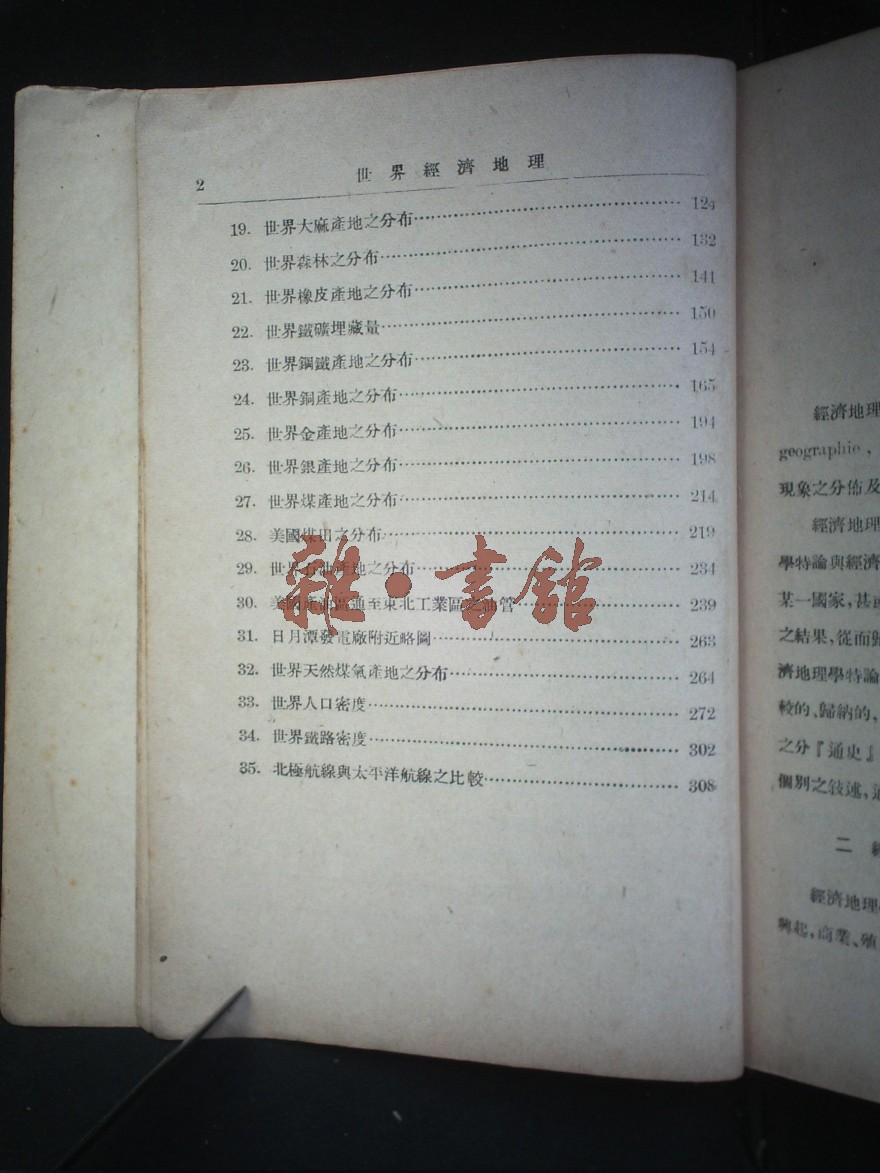 2
世界經濟地理
19. 世界大麻產地之分布 129
20. 世界森林之分布 132
21. 世界橡皮產地之分布 141
22. 世界鐵礦埋藏量 150
23. 世界鋼鐵產地之分布 154
24. 世界銅產地之分布 165
25. 世界金產地之分布 194
26. 世界銀產地之分布 198
27. 世界煤產地之分布 214
28. 美國煤田之分布 219
29. 世界石油產地之分布 234
30. 美國產油區通至東北工業區之油管 239
31. 日月潭發電廠附近略圖 263
32. 世界天然煤氣產地之分布 264
33. 世界人口密度 272
34. 世界鐵路密度 302
35. 北極航線與太平洋航線之比較 308
雜·書館
經濟地理
geographie,
現象之分佈及
經濟地理
學特論與經濟
某一國家,甚
之結果,從而
濟地理學特論
較的、歸納的,
之分『通史』
個別之敍述,
二
經濟地理
興起,商業、殖